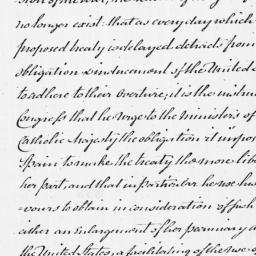 no longer exist: that as every day which
proposed treaty is delayed detracts from
obligation & inducement of the United
to adhere to their Overture; it is the
Congress that he Urge to the ministers of
Catholic Majesty the obligation it
Spain to make the treaty the more
her part, and that in particular he use his
-vours to obtain in consideration of such
either an Enlargement of her pecuniary
the United States, a facilitating of the use of